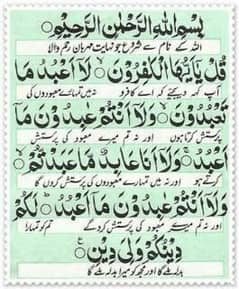 بِسْمِ اللّٰهِ الرَّحْمٰنِ الرَّحِيْمِ
اللہ کے نام سے شروع جو نہایت مہربان رحم والا
قُلْ يٰۤاَيُّهَا الْكٰفِرُوْنَ ۙ لَاۤ اَعْبُدُ مَا
آپ کہہ دیجئے کہ اے کافرو نہ میں تمہارے معبودوں کی
تَعْبُدُوْنَ ۙ وَلَاۤ اَنْتُمْ عٰبِدُوْنَ مَاۤ
پرستش کرتا ہوں اور نہ تم میرے معبود کی پرستش
اَعْبُدُ ۚ وَلَاۤ اَنَا عَابِدٌ مَّا عَبَدْتُّمْ ۙ
کرتے ہو اور نہ میں تمہارے معبودوں کی پرستش کروں گا
وَلَاۤ اَنْتُمْ عٰبِدُوْنَ مَاۤ اَعْبُدُ ؕ لَكُمْ
اور نہ تم میرے معبود کی پرستش کرو گے تم کو تمہارا
دِيْنُكُمْ وَلِيَ دِيْنِ
بدلہ ملے گا اور مجھ کو میرا بدلہ ملے گا